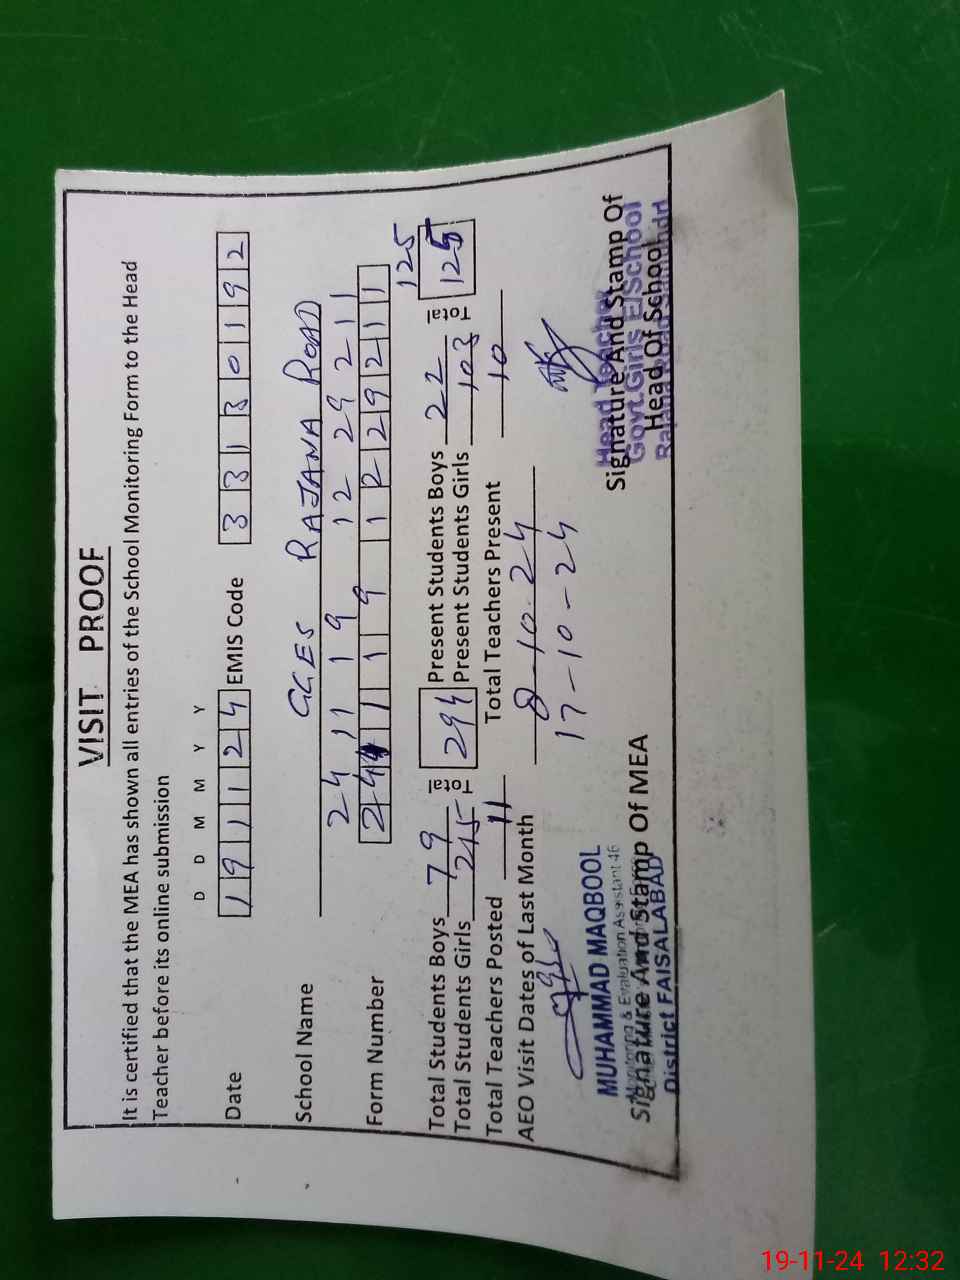 VISIT PROOF
It is certified that the MEA has shown all entries of the School Monitoring Form to the Head
Teacher before its online submission
D D M M Y Y
Date 191124 EMIS Code 33130192
School Name GGES RAJANA ROAD
24 11 19 12 29 211
Form Number 2411191229211
125
Total Students Boys 79 Total 294 Present Students Boys 22 Total 125
Total Students Girls 215 Present Students Girls 103
Total Teachers Posted 11 Total Teachers Present 10
AEO Visit Dates of Last Month 8-10-24
17-10-24
MUHAMMAD MAQBOOL
Monitoring & Evaluation Assistant 46
Signature And Stamp Of MEA
District FAISALABAD
Head Teacher
Signature And Stamp Of
Govt.Girls E/School
Head Of School
Rajana Road
19-11-24 12:32